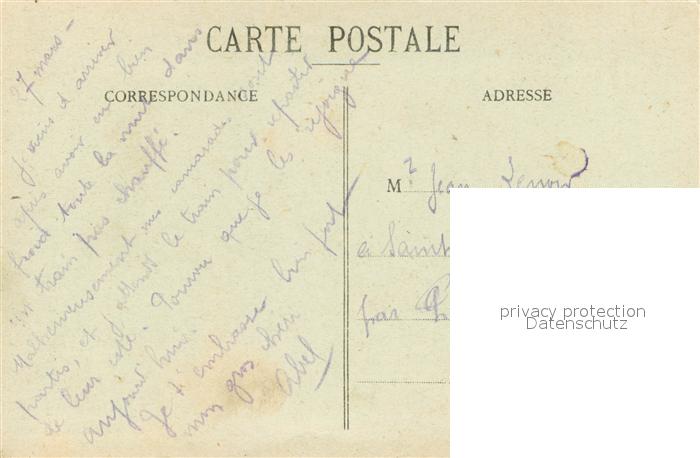 CARTE POSTALE
CORRESPONDANCE
ADRESSE
27 mars -
Je viens d'arriver
après avoir eu bien
froid toute la nuit dans
un train pas chauffé.
Malheureusement mes camarades sont
partis, et j'attends le train pour repartir
de leur côté. Pourvu que je les rejoigne
aujourd'hui.
Je t'embrasse bien fort
mon gros chéri
Abel
Mr Jean Lenoir
à Saint
par
privacy protection
Datenschutz